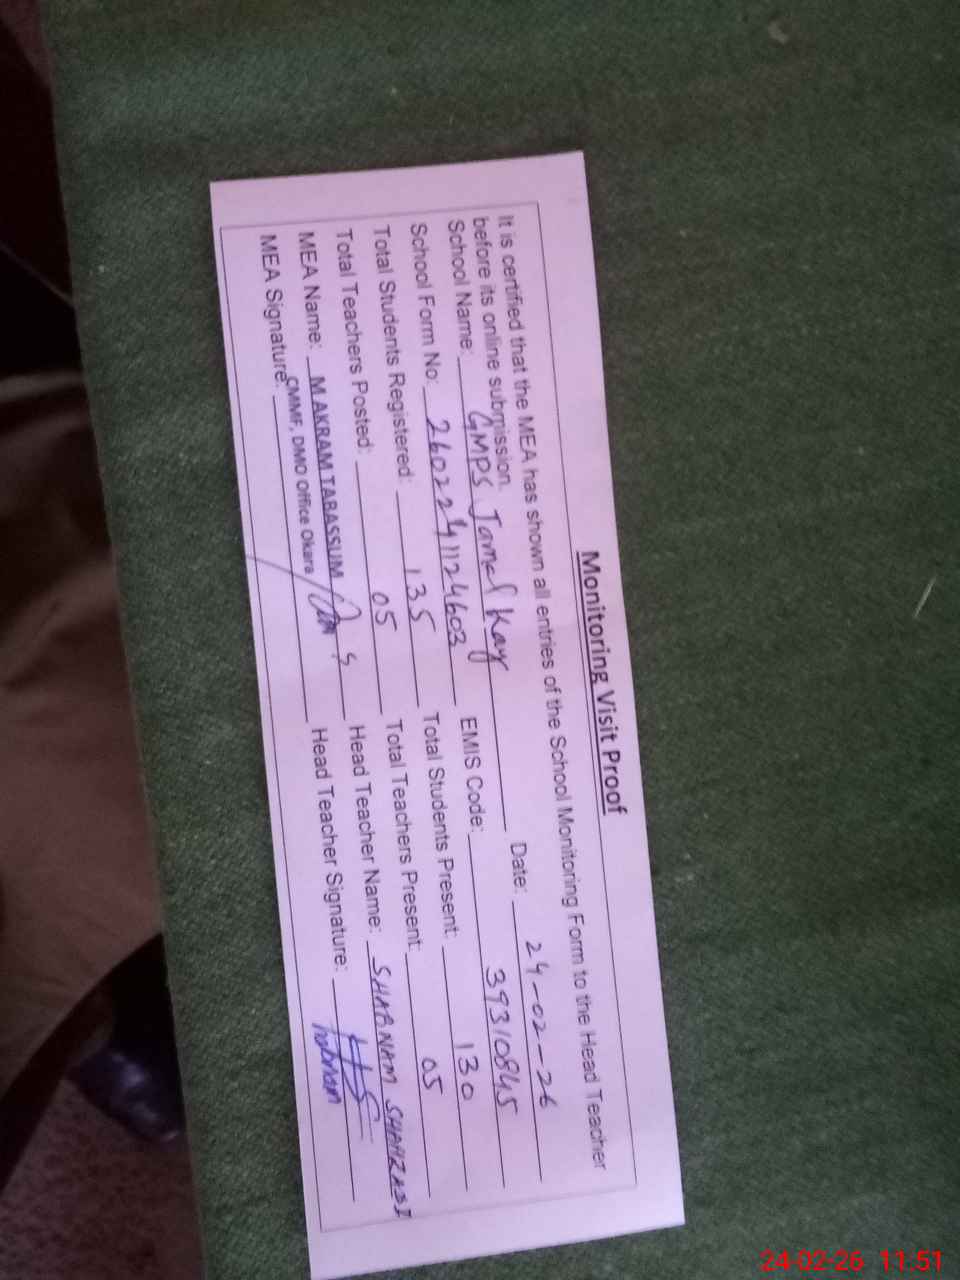 Monitoring Visit Proof
It is certified that the MEA has shown all entries of the School Monitoring Form to the Head Teacher
before its online submission.
School Name: GMPS Jamal Kay Date: 24-02-26
School Form No: 260224112460 EMIS Code: 39310845
Total Students Registered: 135 Total Students Present: 130
Total Teachers Posted: 05 Total Teachers Present: 05
MEA Name: M AKRAM TABASSUM Head Teacher Name: SHABNAM SHAHZADI
CMMF, DMO Office Okara
MEA Signature: Head Teacher Signature:
24-02-26 11:51